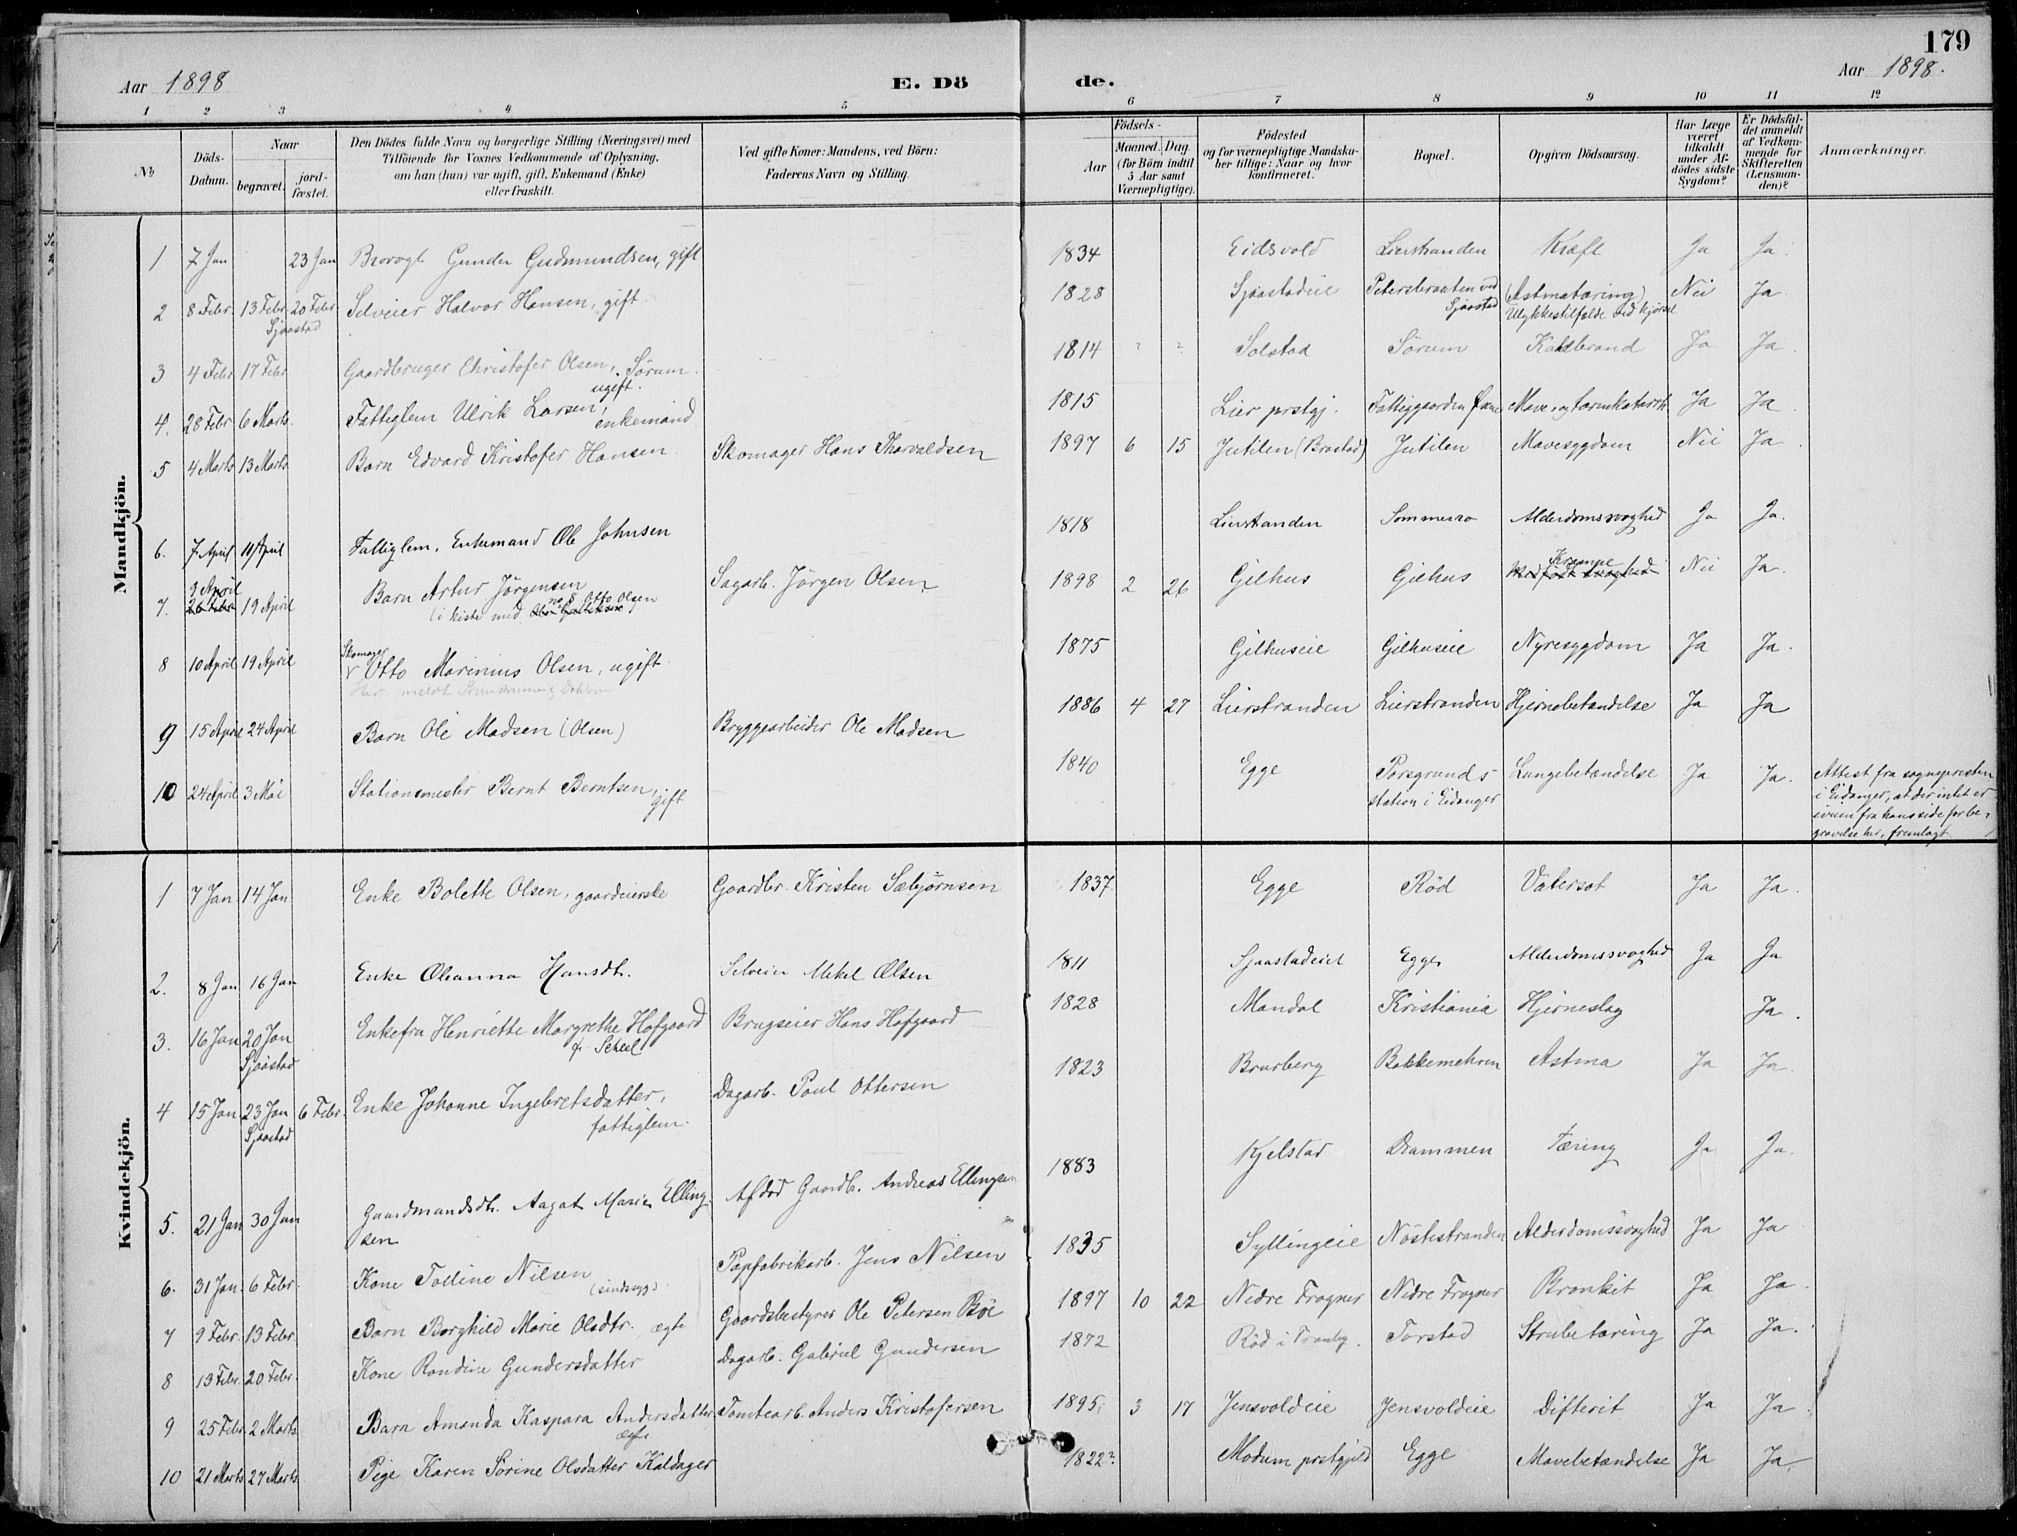 179
Aar 1898 E. Dö de. Aar 1898.
1 2 3 4 5 6 7 8 9 10 11 12
№ Döds-Datum. Naar begravet. jordfæstet. Den Dödes fulde Navn og borgerlige Stilling (Næringsvei) med Tilföiende for Voxnes Vedkommende af Oplysning, om han (hun) var ugift, gift, Enkemand (Enke) eller fraskilt. Ved gifte Koner: Mandens, ved Börn: Faderens Navn og Stilling. Födsels- Aar Maaned. Dag. (for Börn indtil 5 Aar samt Værnepligtige). Födested og for værnepligtige Mandskaber tillige: Naar og hvor konfirmeret. Bopæl. Opgiven Dödsaarsag. Har Læge været tilkaldt under Afdödes sidste Sygdom? Er Dödsfaldet anmeldt af Vedkommende for Skifteretten (Lensmanden)? Anmærkninger.
Mandkjön.
1 7 Jan 23 Jan Brovogt Gunder Gudmundsen, gift 1834 Eidsvold Lierstranden Kræft Ja Ja.
2 8 Febr. 13 Febr. Sjaastad 20 Febr. Selveier Halvor Hansen, gift. 1828 Sjaastadeie Petersbraaten ved Sjaastad (Astmatæring) Ulykkestilfælde ved kjørsel Nei Ja
3 4 Febr. 17 Febr. Gaardbruger Christofer Olsen, Sörum. ugift. 1814 Solstad Sörum Koldbrand Ja Ja.
4. 28 Febr 6 Marts. Fattiglem Ulrik Larsen, enkemand 1815 Lier prstgj. Fattiggaarden Mave og tarmkatarrh Ja Ja.
5 4 Marts 13 Marts. Barn Edvard Kristofer Hansen. Skomager Hans Tharvaldsen 1897 6 15 Jutilen (Brastad) Jutilen Mavesygdom Nei Ja.
6. 7 April 11 April Fattiglem, Enkemand Ole Johnsen 1818 Lierstranden Sommerro Alderdomssvaghed Ja Ja.
7. 9 April 26 Febr 19 April Barn Artur Jörgensen (i kiste med no 8 Otto Olsen) Sagarb. Jörgen Olsen 1898 2 26 Gilhus Gilhus Krampe Medfødt svaghed Nei Ja.
8 10 April 19 April Skomager Otto Marinius Olsen, ugift 1875 Gilhuseie Gilhuseie Nyresygdom Ja Ja.
9 15 April 24 April Barn Ole Madsen (Olsen) Bryggearbeider Ole Madsen 1886 4 27 Lierstranden Lierstranden Hjernebetændelse Ja Ja
10 24 April 3 Mai Stationsmester Bernt Berntsen, gift 1840 Egge Porsgrunds station i Eidanger Lungebetændelse Ja Ja. Attest fra sognepresten
i Eidanger, at der intet er
iveien fra hans side for be-
gravelse her, fremlagt.
Kvindekjön.
1 7 Jan. 14 Jan Enke Bolette Olsen, gaardeierske Gaardbr. Kristen Sæbjørnsen 1837. Egge Röd Vatersot Ja Ja.
2. 8 Jan 16 Jan Enke Oleanna Hansdt. Selveier Mikel Olsen 1811 Sjaastadeiet Egge Alderdomssvaghed Ja Ja
3. 16 Jan 20 Jan Sjaastad Enkefru Henriette Margrethe Hofgaard f. Scheel Brugseier Hans Hofgaard 1828 Mandal Kristiania Hjerneslag Ja.
4 15 Jan 23 Jan Sjaastad 6 Febr. Enke Johanne Ingebretsdatter, fattiglem. Dagarb. Paul Ottersen 1823 Brurberg Bakkemehren Astma Ja Ja.
5. 21 Jan 30 Jan Gaardmandsdt. Aagat Marie Ellingsen Afdød Gaardb. Andreas Ellingsen 1883 Kjelstad Drammen Tæring Ja Ja.
6. 31 Jan. 6 Febr. Kone Tolline Nilsen (sindssyg). Papfabrikarb. Jens Nilsen 1835 Syllingeie Nöstestranden Alderdomssvaghed Ja Ja
7 9 Febr. 13 Febr. Barn Borghild Marie Olsdtr. ægte Gaardsbestyrer Ole Petersen Böe 1897 10 22 Nedre Frogner Nedre Frogner Bronkit Ja Ja.
8 13 Febr. 20 Febr. Kone Randine Gundersdatter Dagarb. Gabriel Gundersen 1872 Röd i Tranby. Torstad Strubetæring Ja Ja.
9 25 Febr. 2 Marts. Barn Amanda Kaspara Andersdatter, ægte Tomtearb. Anders Kristofersen 1895. 3 17 Jensvoldeie Jensvoldeie Difterit Ja Ja.
10 21 Marts 27 Marts. Pige Karen Sörine Olsdatter Kaldager 1822? Modum prstgjeld Egge Mavebetændelse Ja Ja.